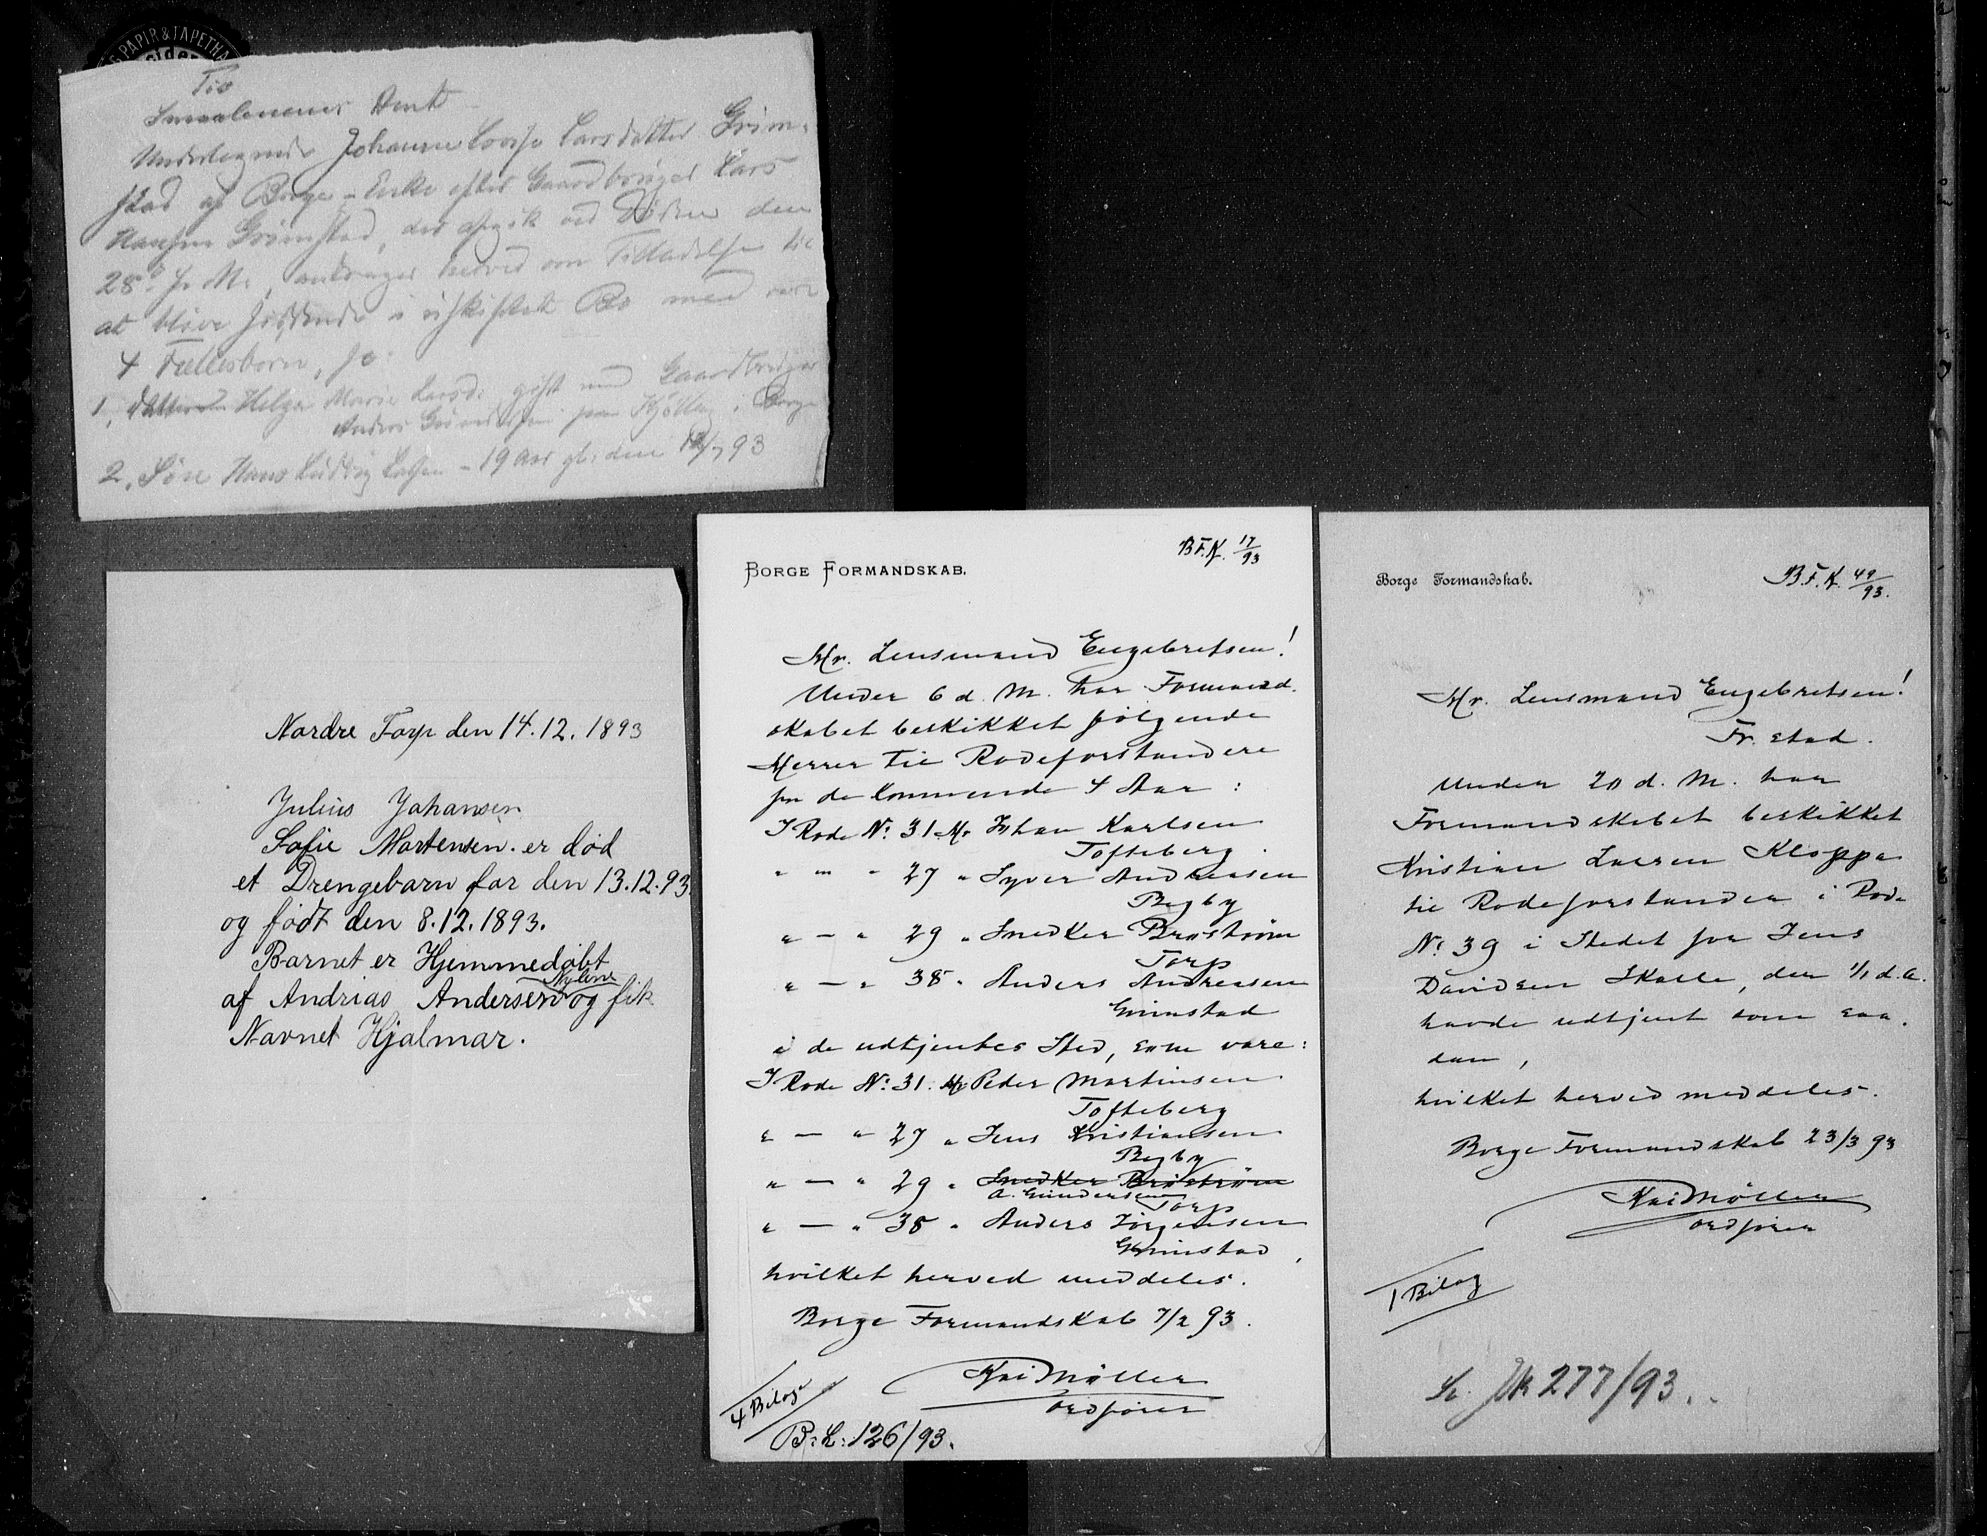 PAPIR & TAPETHA
Til
Smaalenenes Amt
Undertegnede Johanne Lovise Larsdatter Grim-
stad af Borge – Enke efter Gaardbruger Lars
Hansen Grimstad, der afgik ved Døden den
28de f. M., andrager herved om Tilladelse til
at blive siddende i uskiftet Bo med vore
4 Fællesbørn, se:
1, Datteren Helga Marie Larsd. gift med Gaardbruger
Anders Gundersen paa Kjølberg i Borge
2, Søn Hans Ludvig Larsen – 19 Aar gl. den /7 93
Nordre Torp den 14.12. 1893
Julius Johansen
Sofie Mortensen. er død
et Drengebarn far den 13.12.93
og født den 8.12.1893.
Barnet er Hjemmedøbt
Nylene
af Andrias Andersen og fik
Navnet Hjalmar.
B.F.K. 17/93
BORGE FORMANDSKAB.
Mr. Lensmand Engebretsen!
Under 6 d. M. har Formand-
skabet beskikket følgende
Herrer til Rodeforstandere
for de kommende 4 Aar:
I Rode No: 31 Mr Johan Karlsen
Tofteberg.
" — " 27 " Syver Andreasen
Begby
" — " 29 " Snedker Brøstrøm
Torp
" — " 38 " Anders Andreasen
Grimstad
i de udtjentes Sted, som vare:
I Rode No: 31. Mr Peder Martinsen
Tofteberg
" — " 27 " Jens Kristiansen
Begby
" — " 29 " Snedker Brøstrøm
A. Gundersen
Torp
" — " 38 " Anders Jørgensen
Grimstad,
hvilket herved meddeles.
Borge Formandskab 7/2 93.
Kai Møller
ordfører
4 Bilage
B: L: 126/93.
Borge Formandskab.
B.F.K. 49/93.
Mr. Lensmand Engebretsen!
Fr.stad.
Under 20 d. M. har
Formandskabet beskikket
Kristian Larsen Kloppa
til Rodeforstander i Rode
No: 39 i Stedet for Jens
Davidsen Skalle, der 1/1 d. A.
havde udtjent som saa-
dan,
hvilket herved meddeles.
Borge Formandskab 23/3 93
Kai Møller
ordfører
1 Bilag
277/93.